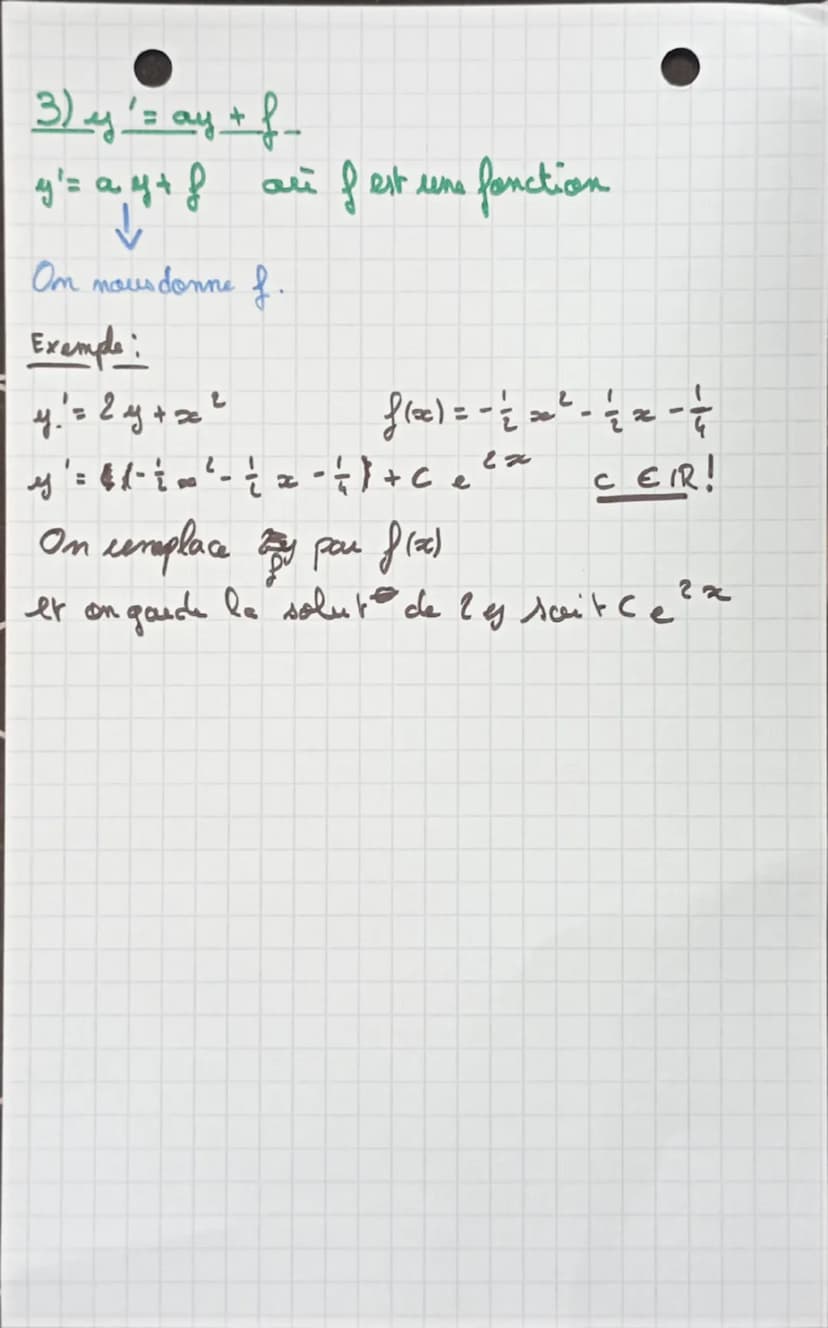 3) y' = ay + f
y' = a y + f où f est une fonction
↓
On nous donne f.
Exemple :
y' = 2y + x² f(x) = -1/2 x² - 1/2 x - 1/4
y' = (-1/2 x² - 1/2 x - 1/4) + C e^2x C ∈ ℝ !
On remplace f par f(x)
et on garde la solut° de 2y soit C e^2x